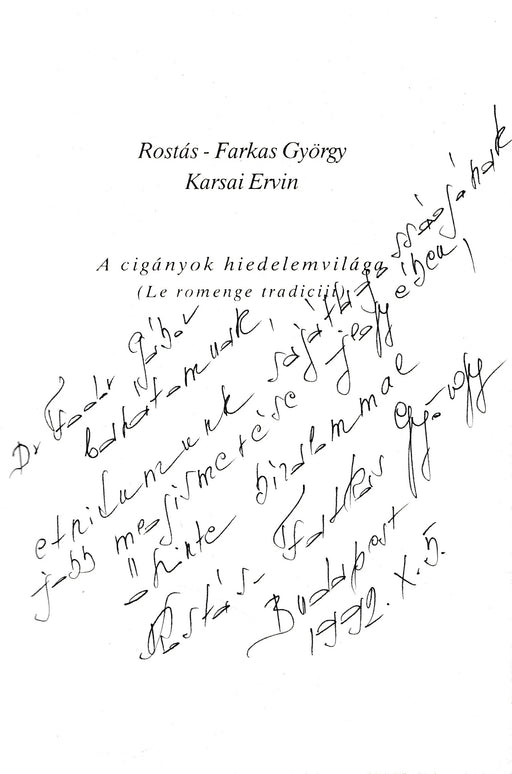 Rostás - Farkas György
Karsai Ervin
A cigányok hiedelemvilága
(Le romenge tradiciji)
Dr Fodor Gábor
barátomnak,
etnikumunk sajátosságának
jobb megismerése jegyében,
őszinte bizalommal
Rostás-Farkas György
Budapest
1992. X. 5.